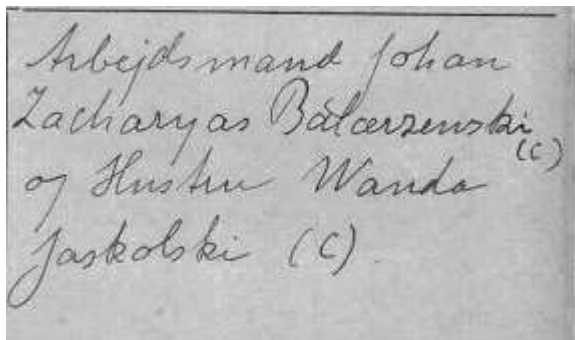 Arbejdsmand Johan
Zacharyas Balcerzenski
(C)
og Hustru Wanda
Jaskolski (C)